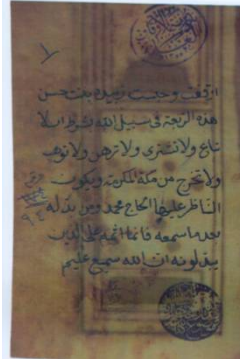 اوقفت وحبست زبيده بنت حسن
هذه الربعة في سبيل الله بشرط ان لا
تباع ولا تشترى ولا ترهن ولا توهب
ولا تخرج من مكة المكرمة ويكون
الناظر عليها الحاج محمد ومن بدله
بعد ما سمعه فانما اثمه على الذين
يبدلونه ان الله سميع عليم